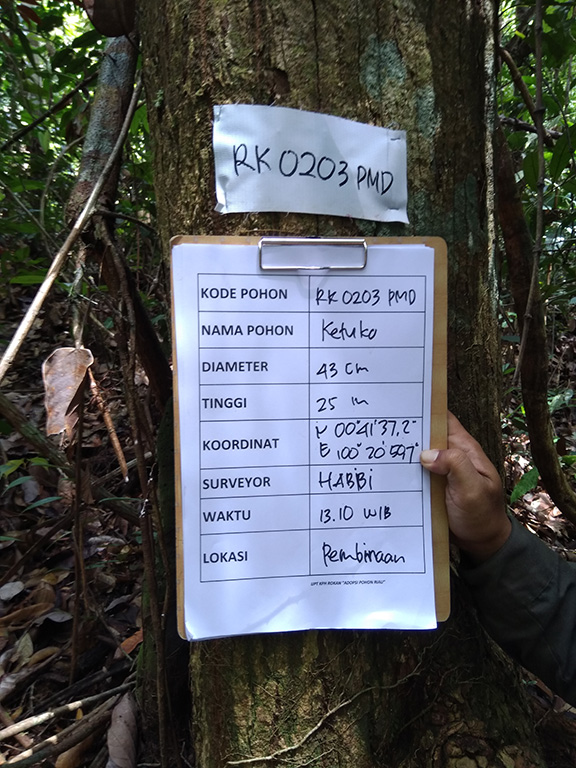 RK 0203 PMD
KODE POHON RK 0203 PMD
NAMA POHON Ketuko
DIAMETER 43 cm
TINGGI 25 m
KOORDINAT N 00°41'37,2"
E 100°20'59,7"
SURVEYOR HABBi
WAKTU 13.10 WIB
LOKASI Pembinaan
UPT KPH ROKAN "ADOPSI POHON RIAU"